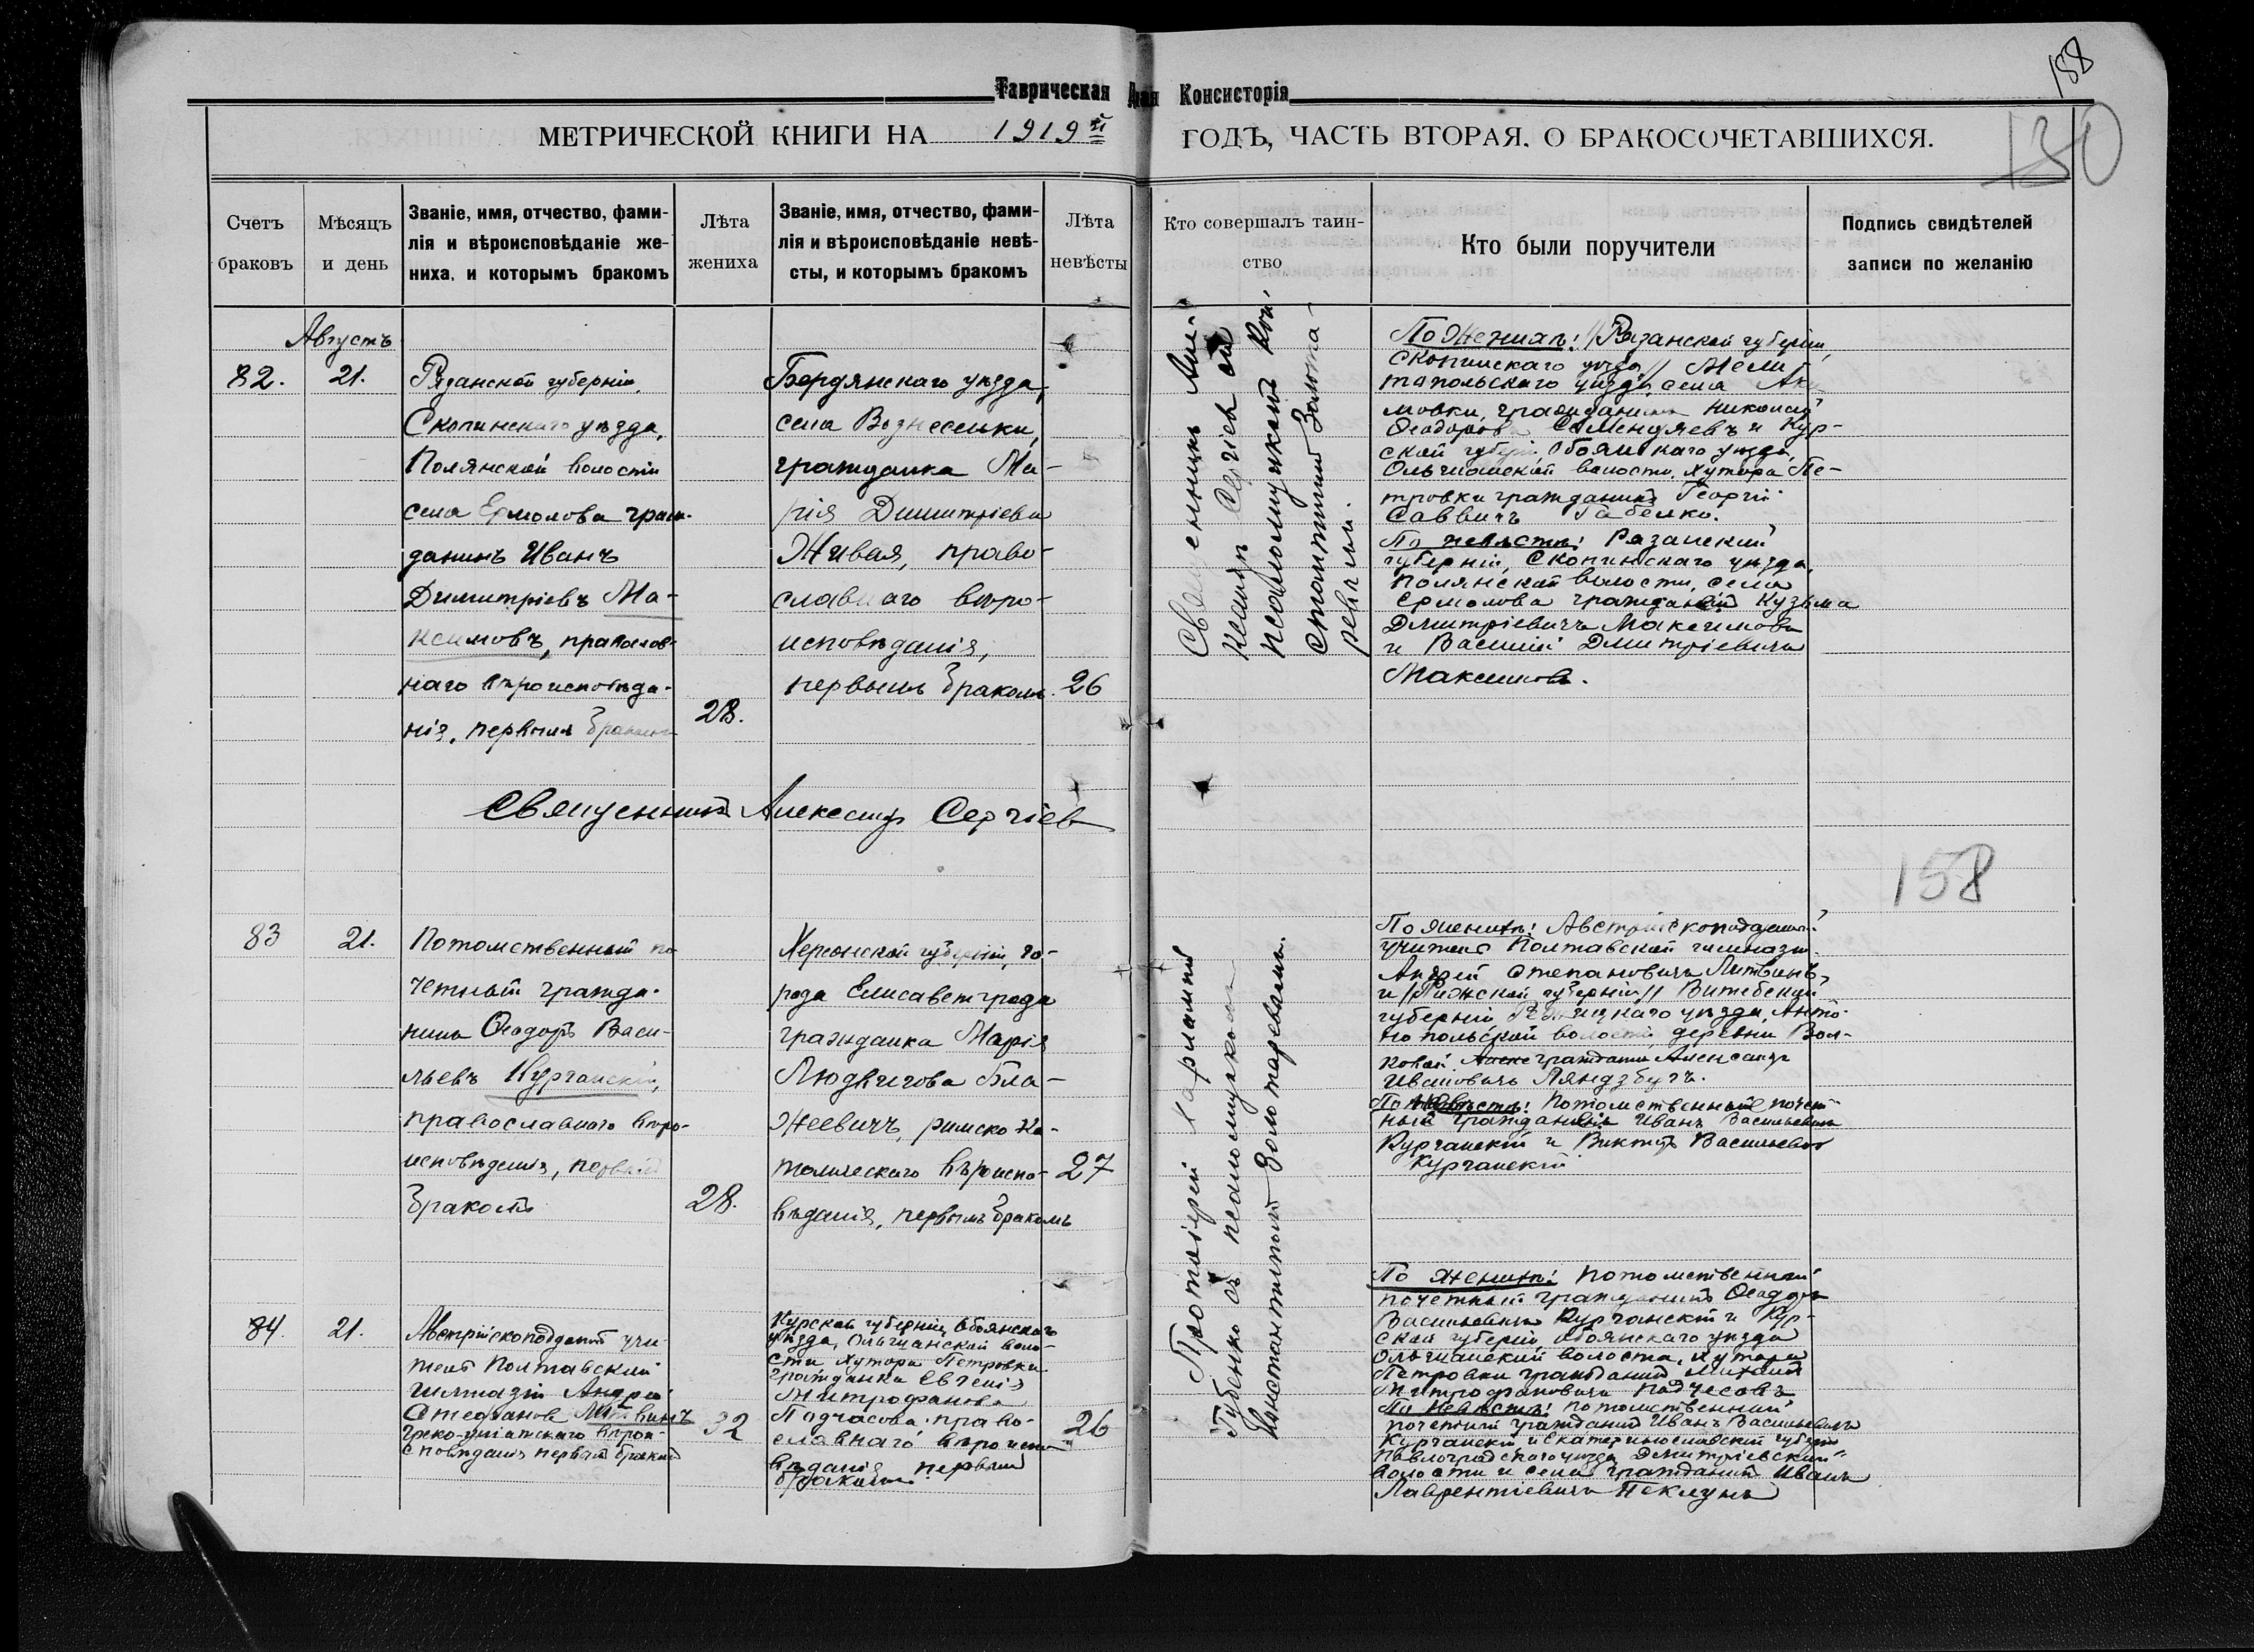 158
Таврическая Дхная Консисторія
130
МЕТРИЧЕСКОЙ КНИГИ НА 1919й ГОДЪ, ЧАСТЬ ВТОРАЯ, О БРАКОСОЧЕТАВШИХСЯ.
Счетъ
браковъ
Мѣсяцъ
и день
Званіе, имя, отчество, фами-
лія и вѣроисповѣданіе же-
ниха, и которымъ бракомъ
Лѣта
жениха
Званіе, имя, отчество, фами-
лія и вѣроисповѣданіе невѣ-
сты, и которымъ бракомъ
Лѣта
невѣсты
Кто совершалъ таин-
ство
Кто были поручители
Подпись свидѣтелей
записи по желанію
Августъ
82.
21.
Рязанской губерніи,
Скопинскаго уѣзда,
Полянской волости
села Ермолова граж-
данинъ Иванъ
Димитріевъ Ма-
ксимовъ, православ-
наго вѣроисповѣда-
нія, первымъ бракомъ
28.
Бердянскаго уѣзда,
села Вознесенки,
гражданка Ма-
рія Димитріева
Живая, право-
славнаго вѣро-
исповѣданія,
первымъ бракомъ.
26
Священникъ Але-
ксандр Сергіев съ
псаломщикомъ Кон-
стантиномъ Золота-
ревымъ.
По женихѣ: //Рязанской губерніи,
Скопинскаго уѣзда// Мели-
топольскаго уѣзда, села Аки
мовки, гражданинъ Николай
Ѳеодоров Семендяевъ и Кур-
ской губерніи, Обоянскаго уѣзда,
Ольшанской волости, хутора Пе-
тровки гражданинъ Георгій
Саввичъ Габелко.
По невѣстѣ: Рязанской
губерніи, Скопинскаго уѣзда,
Полянской волости, села
Ермолова граждане Кузьма
Дмитріевичъ Максимовъ
и Василій Дмитріевичъ
Максимовъ.
Священникъ Александръ Сергіев
158
83
21.
Потомственный по
четный гражда-
нинъ Ѳеодоръ Васи-
льевъ Курчанскій,
православнаго вѣро-
исповѣданія, первымъ
бракомъ
28.
Херсонской губерніи, го-
рода Елисаветграда
гражданка Марія
Людвигова Бла-
жеевичъ, римско ка-
толическаго вѣроиспо-
вѣданія, первымъ бракомъ
27
Протоіерей Харлампій
Губенко съ псаломщикомъ
Константиномъ Золотаревымъ.
По женихѣ: Австрійскоподданный
учитель Полтавской гимназіи
Андрей Степановичъ Литвинъ
и //Рижской губерніи// Витебской
губерніи Рѣжицкаго уѣзда, Анто-
нопольской волости, деревни Вол-
ковой гражданинъ Александр
Ивановичъ Ляндзбугъ.
По невѣстѣ: Потомственный почет-
ный гражданинъ Иванъ Васильевичъ
Курчанскій и Викторъ Васильевичъ
Курчанскій
84.
21.
Австрійскоподданый учи-
тель Полтавской
гимназіи Андрей
Стефановъ Литвинъ
Греко-уніатскаго вѣрои-
сповѣданія первымъ бракомъ
32
Курской губерніи, Обоянскаго
уѣзда, Ольшанской воло-
сти, хутора Петровки
гражданка Евгенія
Митрофанова
Подчасова, право-
славнаго вѣроиспо-
вѣданія первымъ
бракомъ
26
По женихѣ: потомственный
почетный гражданинъ Ѳеодоръ
Васильевичъ Курчанскій и Кур-
ской губерніи, Обоянскаго уѣзда
Ольшанской волости, хутора
Петровки гражданинъ Михаилъ
Митрофановичъ Подчесовъ
По невѣстѣ: потомственный
почетный гражданинъ Иванъ Васильевичъ
Курчанскій, и Екатеринославской губерніи
Павлоградскаго уѣзда Дмитріевской
волости и села гражданинъ Иванъ
Лаврентіевичъ Пеклунъ